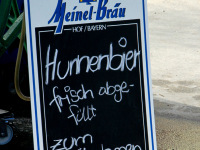 Meinel-Bräu
HOF/BAYERN
Hunnenbier
frisch abge-
füllt
zum